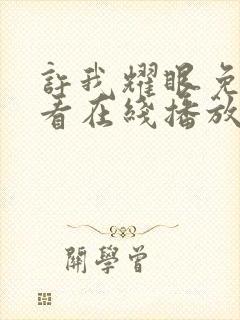 許我耀眼免
看在綫播放
開學曾